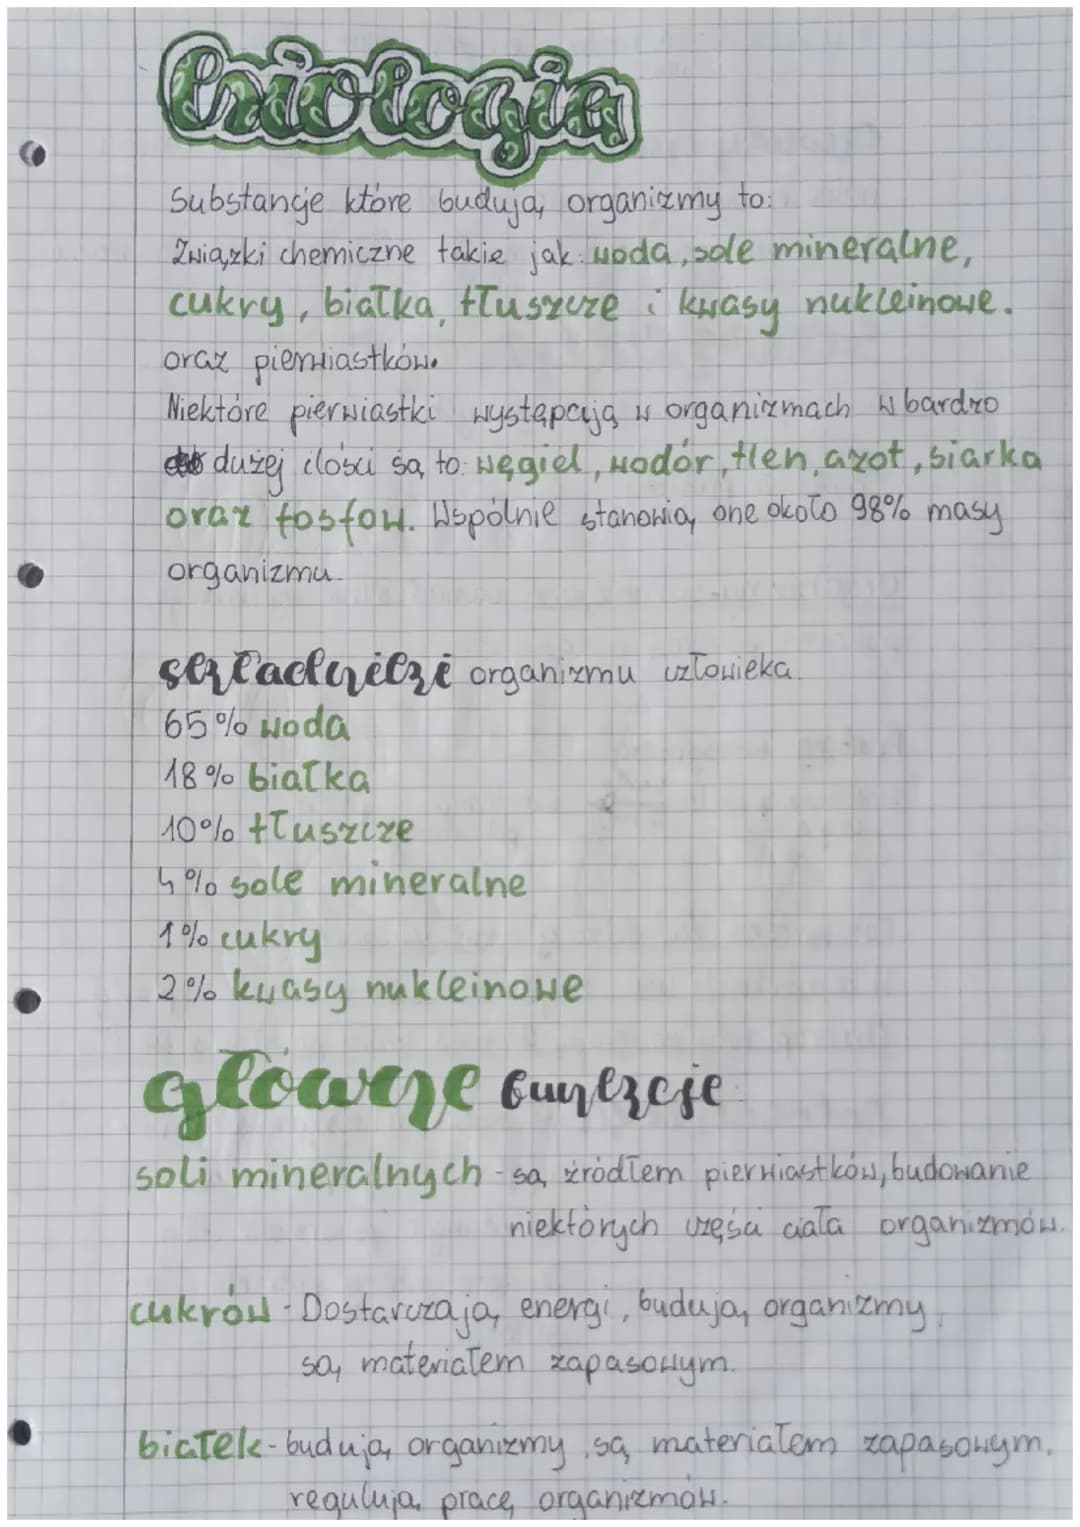 biologia
Substancje które budują organizmy to:
Związki chemiczne takie jak: woda, sole mineralne,
cukry, białka, tłuszcze i kwasy nukleinowe.
oraz pierwiastków.
Niektóre pierwiastki występcują w organizmach w bardzo
dużej ilości są to: węgiel, wodór, tlen, azot, siarka
oraz fosfow. Wspólnie stanowią one około 98% masy
organizmu.
składniki organizmu człowieka.
65% woda
18% białka
10% tłuszcze
4% sole mineralne
1% cukry
2% kwasy nukleinowe
główne funkcje
soli mineralnych - są źródłem pierwiastków, budowanie
niektórych części ciała organizmów.
cukrów - Dostarczają energi, budują organizmy,
są materiałem zapasowym.
białek - budują organizmy, są materiałem zapasowym,
regulują pracę organizmów.